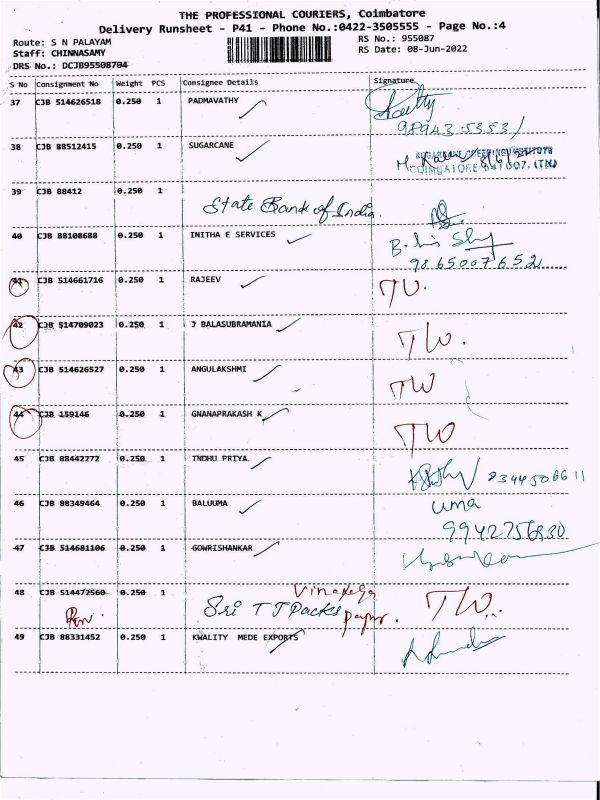 THE PROFESSIONAL COURIERS, Coimbatore
Delivery Runsheet - P41 - Phone No.:0422-3505555 - Page No.:4
Route: S N PALAYAM RS No.: 955087
Staff: CHINNASAMY RS Date: 08-Jun-2022
DRS No.: DCJB95508704
S No Consignment No Weight PCS Consignee Details Signature
37 CJB 514626518 0.250 1 PADMAVATHY
38 CJB 88512415 0.250 1 SUGARCANE
COIMBATORE-641007. (TN)
39 CJB 88412 0.250 1
State Bank of India
40 CJB 88108688 0.250 1 INITHA E SERVICES
9865007652
41 CJB 514661716 0.250 1 RAJEEV
42 CJB 514709023 0.250 1 J BALASUBRAMANIA
43 CJB 514626527 0.250 1 ANGULAKSHMI
TW
44 CJB 159146 0.250 1 GNANAPRAKASH K
TW
45 CJB 88442272 0.250 1 INDHU PRIYA
46 CJB 88349464 0.250 1 BALUUMA uma
47 CJB 514681106 0.250 1 GOWRISHANKAR
48 CJB 514472560 0.250 1 Sri T T Packs TW.
49 CJB 88331452 0.250 1 KWALITY MEDE EXPORTS